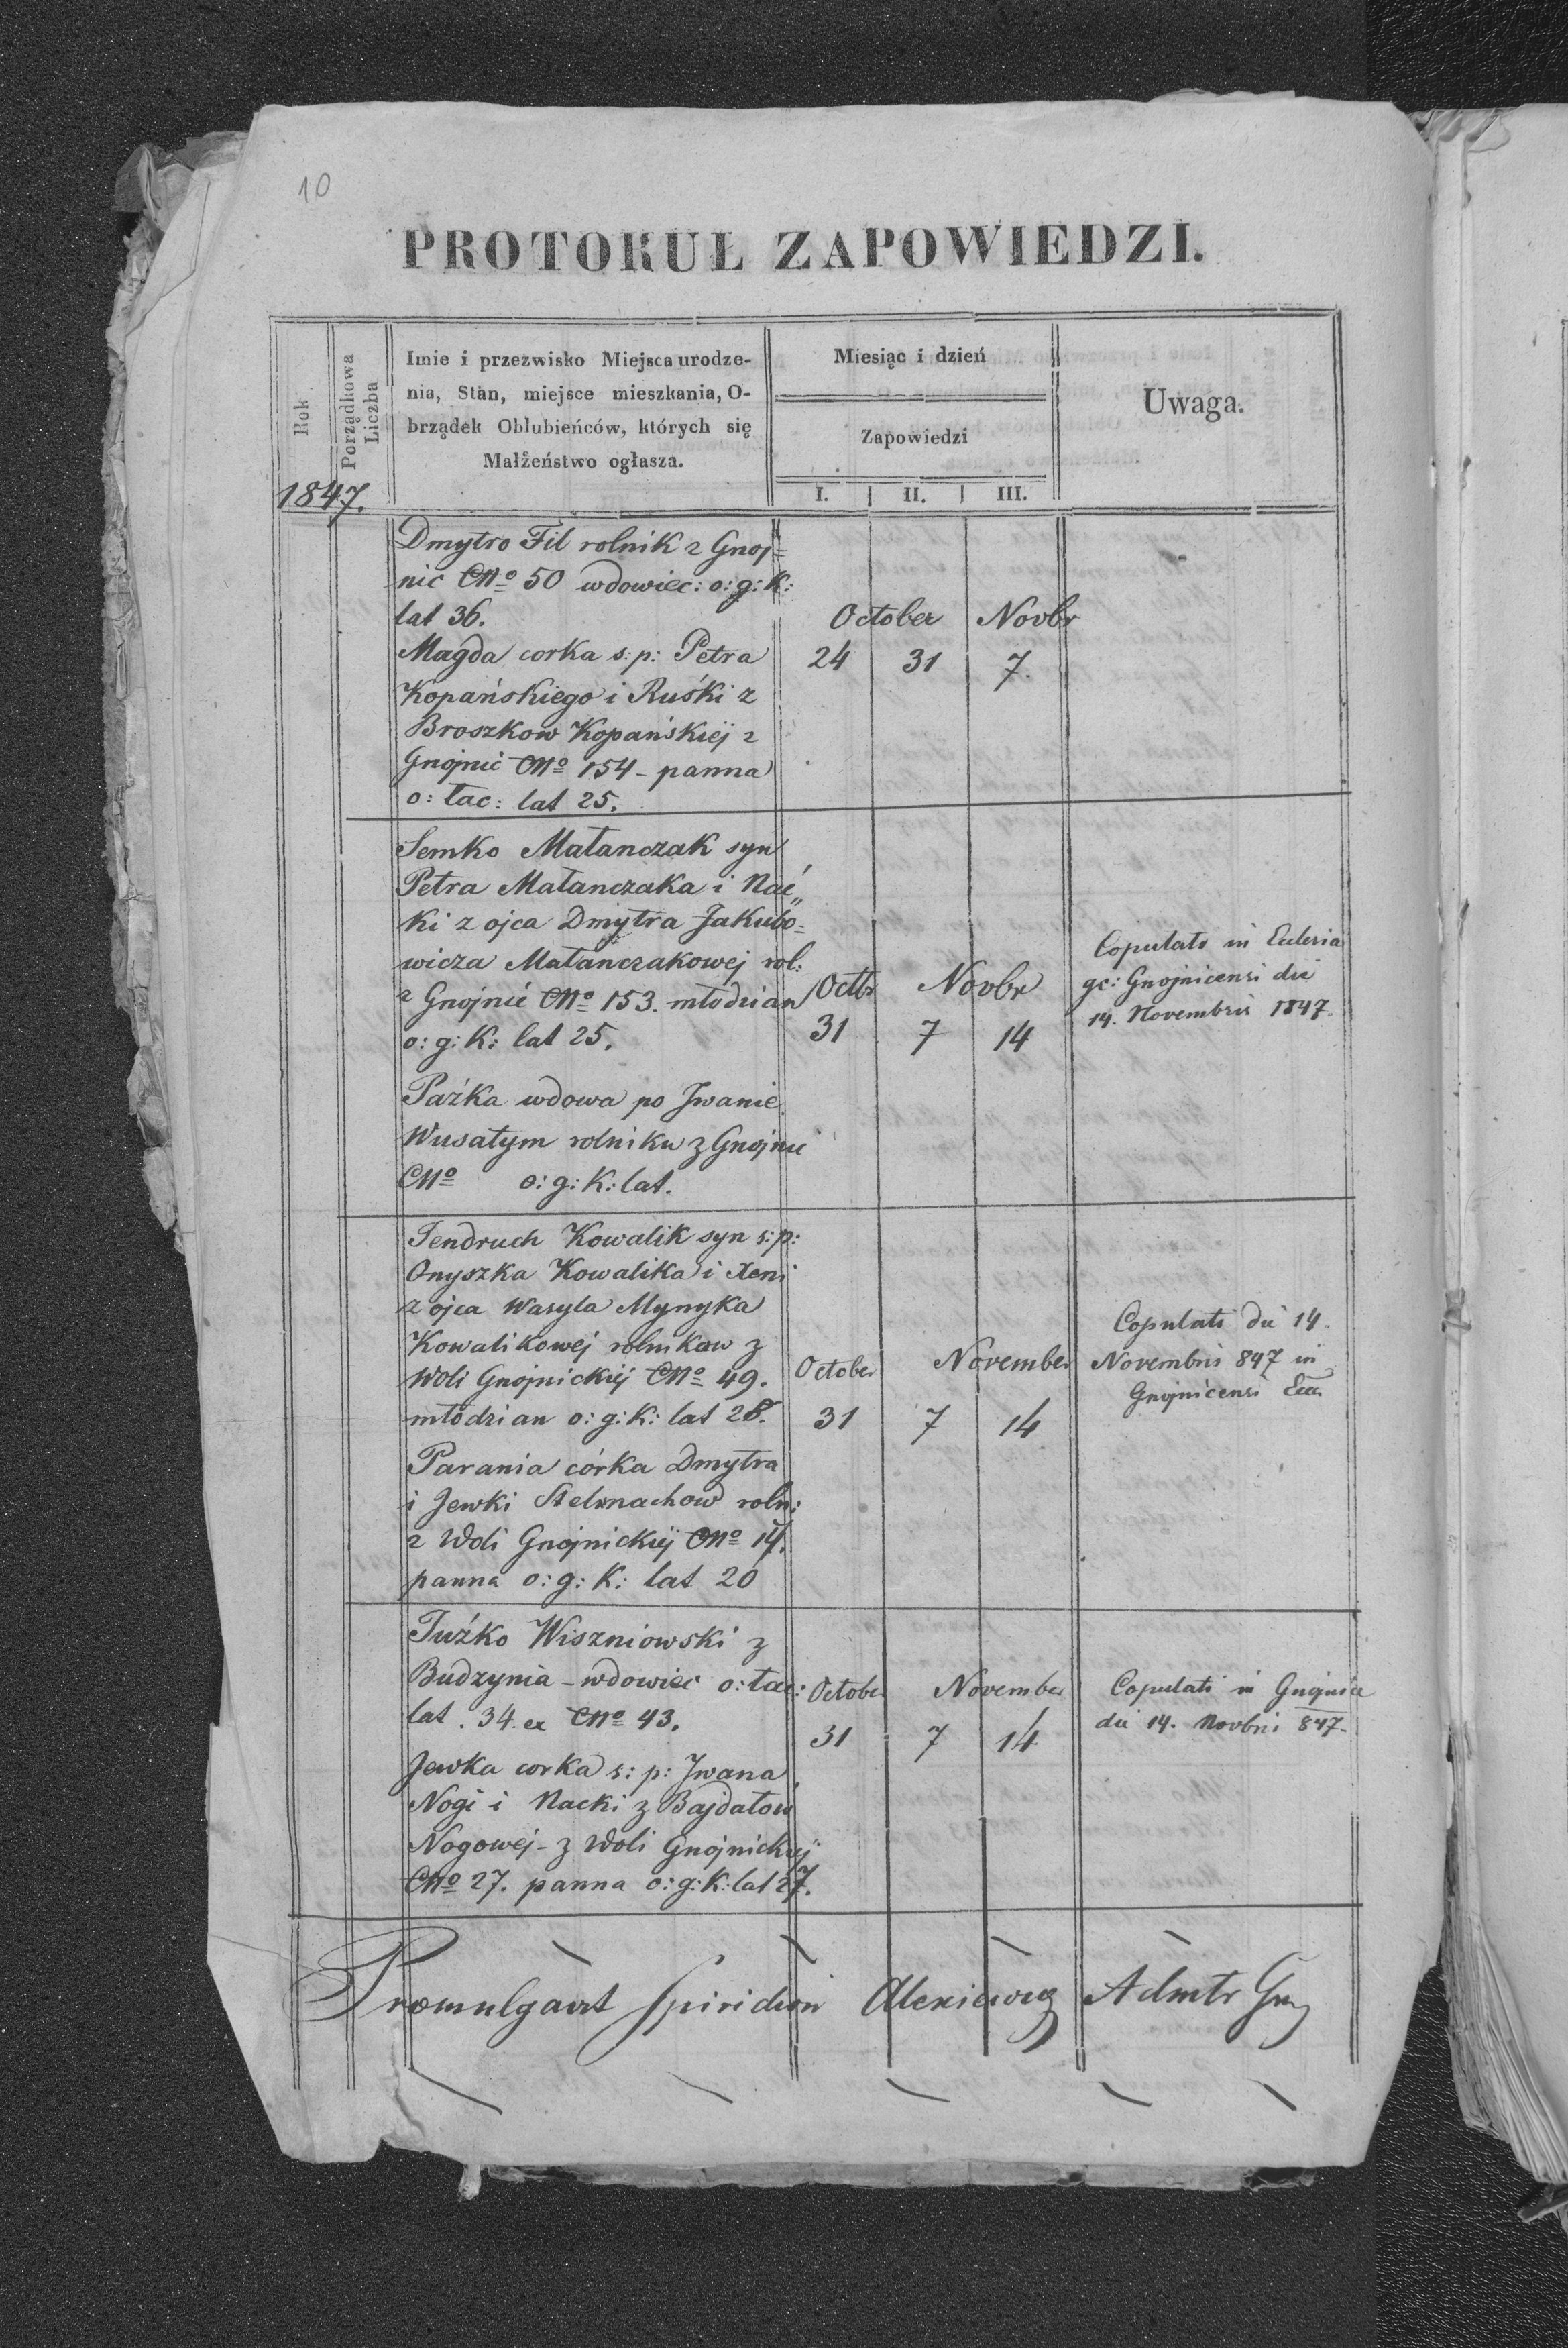 10
PROTOKUŁ ZAPOWIEDZI.
Rok
Porządkowa
Liczba
Imie i przezwisko Miejsca urodze-
nia, Stan, miejsce mieszkania, O-
brządek Oblubieńców, których się
Małżeństwo ogłasza.
Miesiąc i dzień
Zapowiedzi
I. II. III.
Uwaga.
1847.
Dmytro Fil rolnik z Gnoj=
nic CNo 50 wdowiec: o: g: k:
lat 36.
Magda corka s: p: Petra
Kopańskiego i Ruśki z
Broszkow Kopańskiéj z
Gnojnic CNo 154 - panna
o: łac: lat 25.
October Novbr
24 31 7.
Semko Małanczak syn
Petra Małanczaka i Nać„
ki z ojca Dmytra Jakubo=
wicza Małanczakowej rol:
z Gnojnic CNo 153. młodzian
o: g: k: lat 25.
Paźka wdowa po Jwanie
Wusatym rolniku z Gnojnic
CNo o: g: K: lat.
Octbr Novbr
31 7 14
Copulati in Ecclesia
gc: Gnojnicensi die
14. Novembris 1847.
Jendruch Kowalik syn s: p:
Onyszka Kowalika i Xeni
z ojca Wasyla Mynyka
Kowalikowej rolnikow z
Woli Gnojnickiéj CNo 49.
młodzian o: g: K: lat 28.
Parania córka Dmytra
i Jewki Stelmachow roln:
z Woli Gnojnickiéj CNo 14.
panna o: g: K: lat 20
October November
31 7 14
Copulati die 14.
Novembris 847 in
Gnojnicensi Ecc.
Tuźko Wiszniowski z
Budzynia - wdowiec o: łac:
lat. 34. ex CNo 43.
Jewka corka s: p: Jwana
Nogi i Nacki z Bajdałow
Nogowej - z Woli Gnojnickiéj
CNo 27. panna o: g: K: lat 27.
October November
31 7 14
Copulati in Gnojnice
die 14. Novbris 847.
Promulgavit Spiridion Alexiewicz Admtr Gnoj